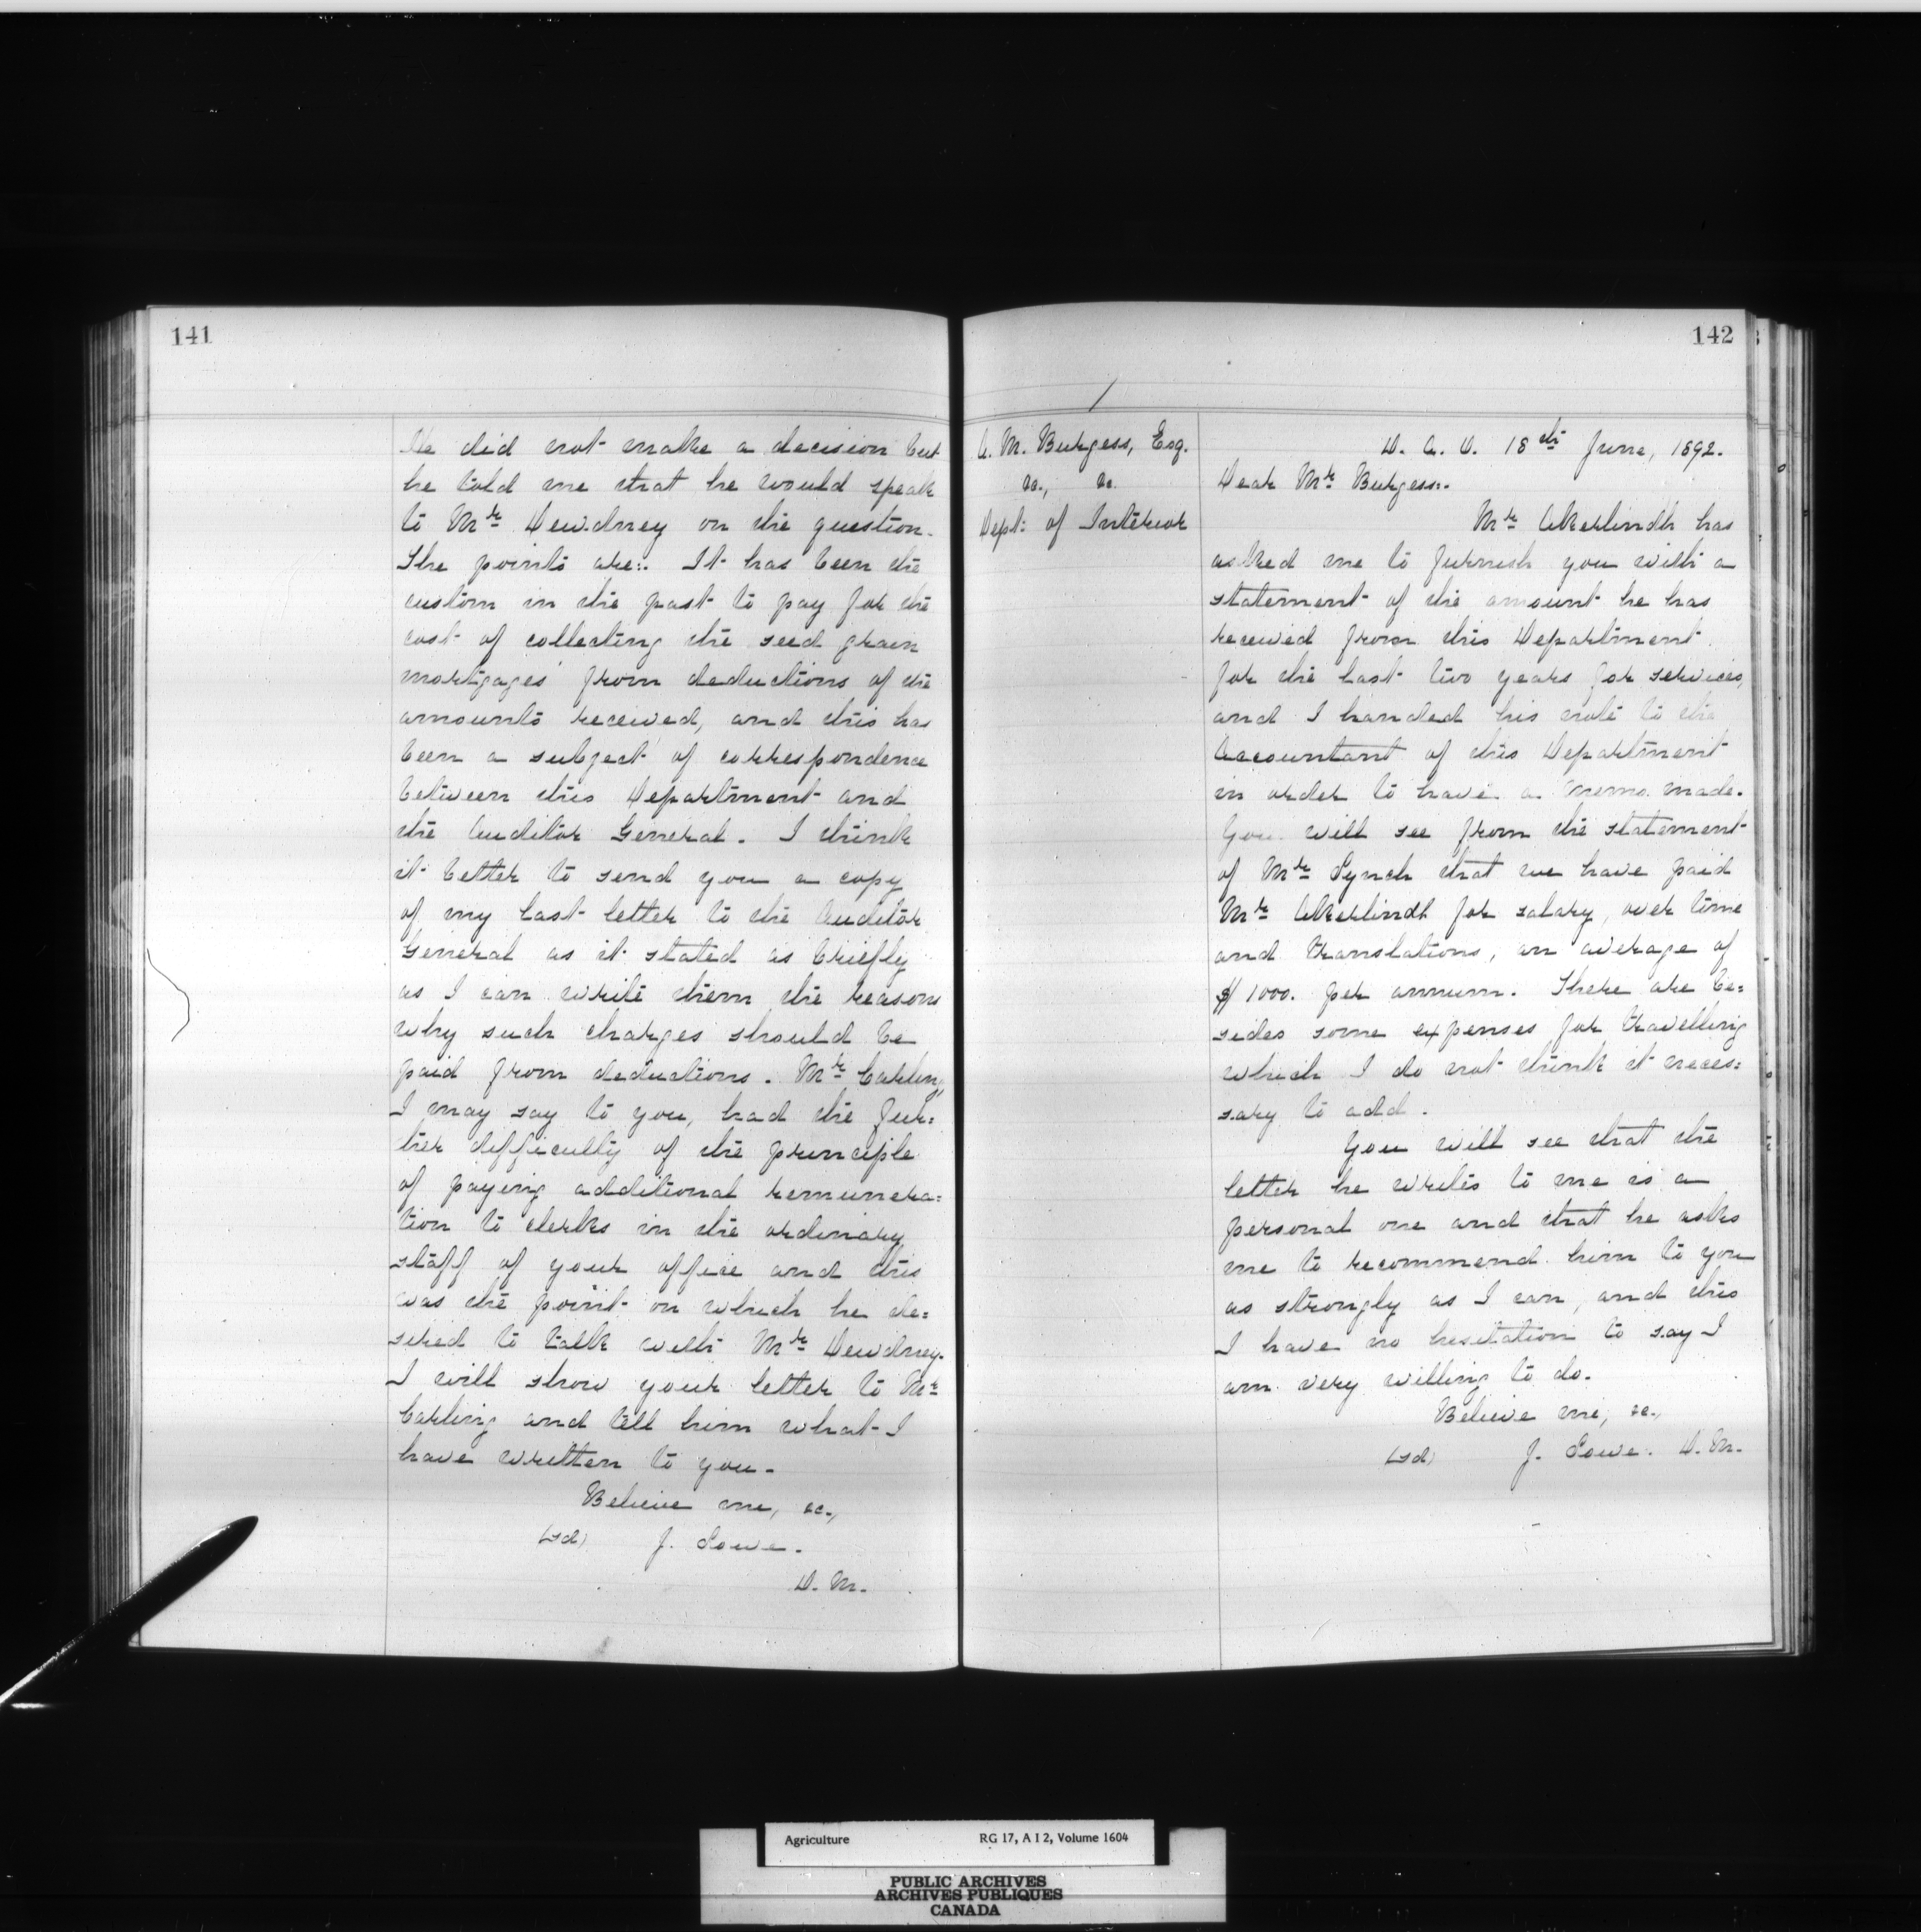 141
He did not make a decision but
he told me that he would speak
to Mr Dewdney on the question.
The points are:- It has been the
custom in the past to pay for the
cost of collecting the seed grain
mortgages from deductions of the
amounts received, and this has
been a subject of correspondence
between this Department and
the Auditor General. I think
it better to send you a copy
of my last letter to the Auditor
General as it stated as briefly
as I can write them the reasons
why such charges should be
paid from deductions. Mr Carling,
I may say to you, had the fur=
ther difficulty of the principle
of paying additional remunera=
tion to clerks in the ordinary
staff of your office and this
was the point on which he de=
sired to talk with Mr Dewdney.
I will show your letter to Mr
Carling and tell him what I
have written to you.
Believe me, &c.,
(sd) J. Lowe.
D. M.
142
A. M. Burgess, Esq.
&c., &c.
Dept: of Interior
D. A. O. 18th June, 1892.
Dear Mr Burgess:-
Mr Akerlindh has
asked me to furnish you with a
statement of the amount he has
received from this Department
for the last two years for services,
and I handed his note to the
Accountant of this Department
in order to have a memo. made.
You will see from the statement
of Mr Lynch that we have paid
Mr Akerlindh for salary, over time
and translations, an average of
$1000. per annum. There are be=
sides some expenses for travelling
which I do not think it neces=
sary to add.
You will see that the
letter he writes to me is a
personal one and that he asks
me to recommend him to you
as strongly as I can, and this
I have no hesitation to say I
am very willing to do.
Believe me, &c.,
(sd) J. Lowe. D. M.
Agriculture RG 17, A I 2, Volume 1604
PUBLIC ARCHIVES
ARCHIVES PUBLIQUES
CANADA